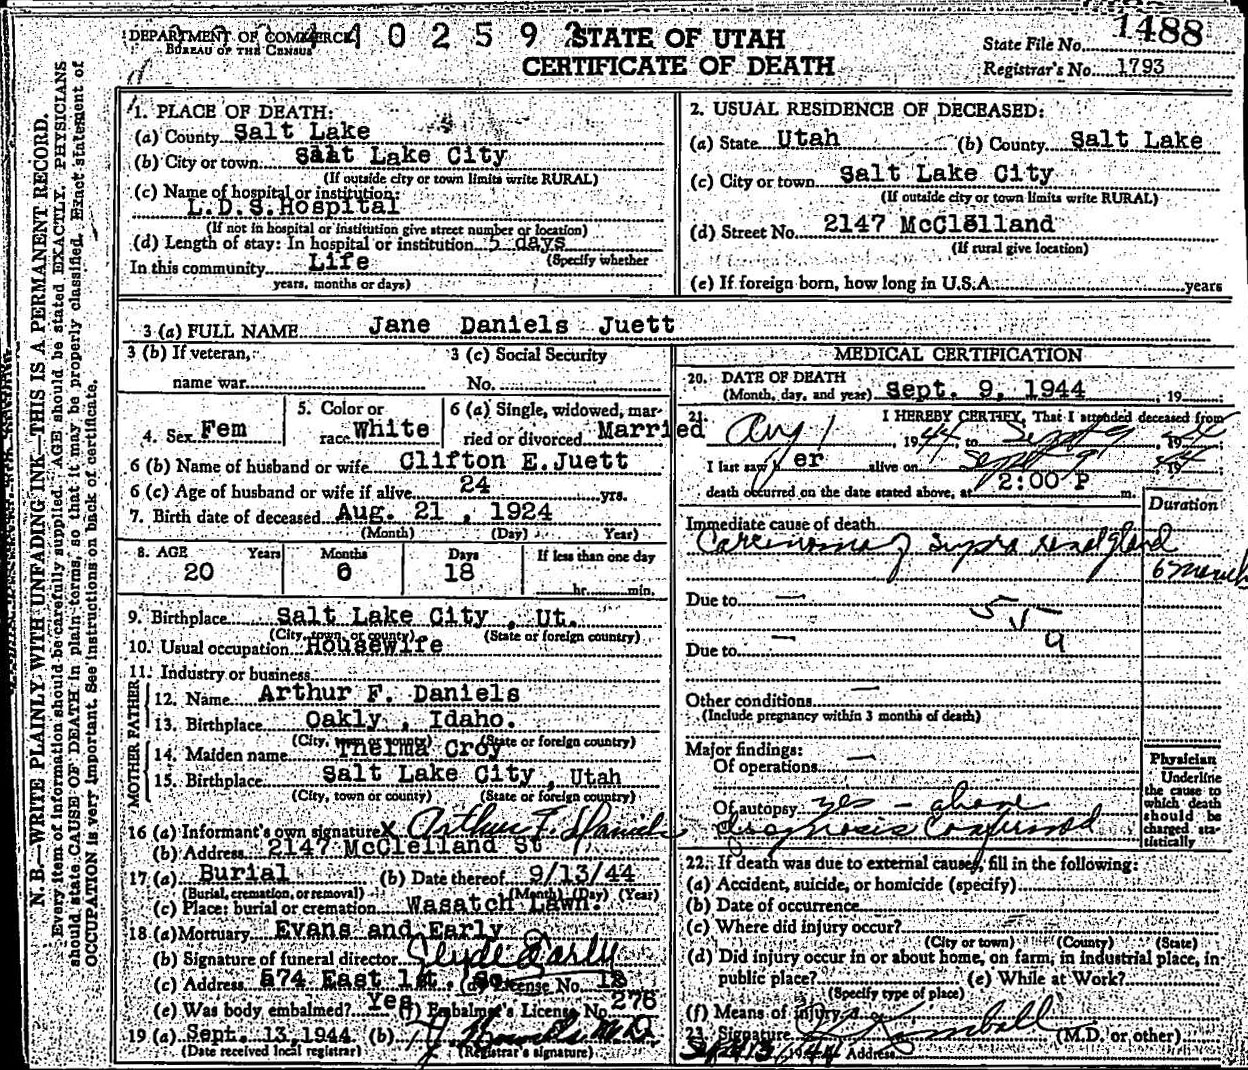 DEPARTMENT OF COMMERCE
BUREAU OF THE CENSUS
4 4 0 2 5 9 2
STATE OF UTAH
CERTIFICATE OF DEATH
State File No. 1488
Registrar's No. 1793
N. B.—WRITE PLAINLY WITH UNFADING INK—THIS IS A PERMANENT RECORD.
Every item of information should be carefully supplied. AGE should be stated EXACTLY. PHYSICIANS
should state CAUSE OF DEATH in plain terms, so that it may be properly classified. Exact statement of
OCCUPATION is very important. See instructions on back of certificate.
1. PLACE OF DEATH:
(a) County Salt Lake
(b) City or town Salt Lake City
(If outside city or town limits write RURAL)
(c) Name of hospital or institution:
L.D.S.Hospital
(If not in hospital or institution give street number or location)
(d) Length of stay: In hospital or institution 5 days
(Specify whether
In this community Life
years, months or days)
2. USUAL RESIDENCE OF DECEASED:
(a) State Utah (b) County Salt Lake
(c) City or town Salt Lake City
(If outside city or town limits write RURAL)
(d) Street No. 2147 McClelland
(If rural give location)
(e) If foreign born, how long in U.S.A. years
3 (a) FULL NAME Jane Daniels Juett
3 (b) If veteran, 3 (c) Social Security
name war No.
4. Sex Fem 5. Color or race White 6 (a) Single, widowed, married or divorced Married
6 (b) Name of husband or wife Clifton E.Juett
6 (c) Age of husband or wife if alive 24 yrs.
7. Birth date of deceased Aug. 21 , 1924
(Month) (Day) Year)
8. AGE Years Months Days If less than one day
20 0 18 hr. min.
9. Birthplace Salt Lake City , Ut.
(City, town, or county) (State or foreign country)
10. Usual occupation Housewife
11. Industry or business
FATHER
12. Name Arthur F. Daniels
13. Birthplace Oakly , Idaho.
(City, town or county) (State or foreign country)
MOTHER
14. Maiden name Thelma Croy
15. Birthplace Salt Lake City , Utah
(City, town or county) (State or foreign country)
16 (a) Informant's own signature x Arthur F. Daniels
(b) Address 2147 McClelland St
17 (a) Burial (b) Date thereof 9/13/44
(Burial, cremation, or removal) (Month) (Day) (Year)
(c) Place: burial or cremation Wasatch Lawn.
18 (a) Mortuary Evans and Early
(b) Signature of funeral director Clyde Early
(c) Address 574 East 1st. So. (d) License No. 18
(e) Was body embalmed? Yes (f) Embalmer's License No. 276
19 (a) Sept. 13,1944 (b) M.D.
(Date received local registrar) (Registrar's signature)
MEDICAL CERTIFICATION
20. DATE OF DEATH
(Month, day, and year) Sept. 9, 1944 , 19
21. I HEREBY CERTIFY, That I attended deceased from
Aug 1 1944 to Sept 9 1944
I last saw her alive on Sept 9 1944
death occurred on the date stated above, at 2:00 P m.
Duration
Immediate cause of death
Carcinoma of supra renal gland
6 months
Due to —
55
9
Due to —
Other conditions —
(Include pregnancy within 3 months of death)
Major findings:
Of operations —
Of autopsy yes — above
diagnosis confirmed
Physician
Underline
the cause to
which death
should be
charged sta-
tistically
22. If death was due to external causes, fill in the following:
(a) Accident, suicide, or homicide (specify)
(b) Date of occurrence
(c) Where did injury occur?
(City or town) (County) (State)
(d) Did injury occur in or about home, on farm, in industrial place, in
public place? (e) While at Work?
(Specify type of place)
(f) Means of injury
23. Signature Kimball (M.D. or other)
Sept 13, 1944 Address